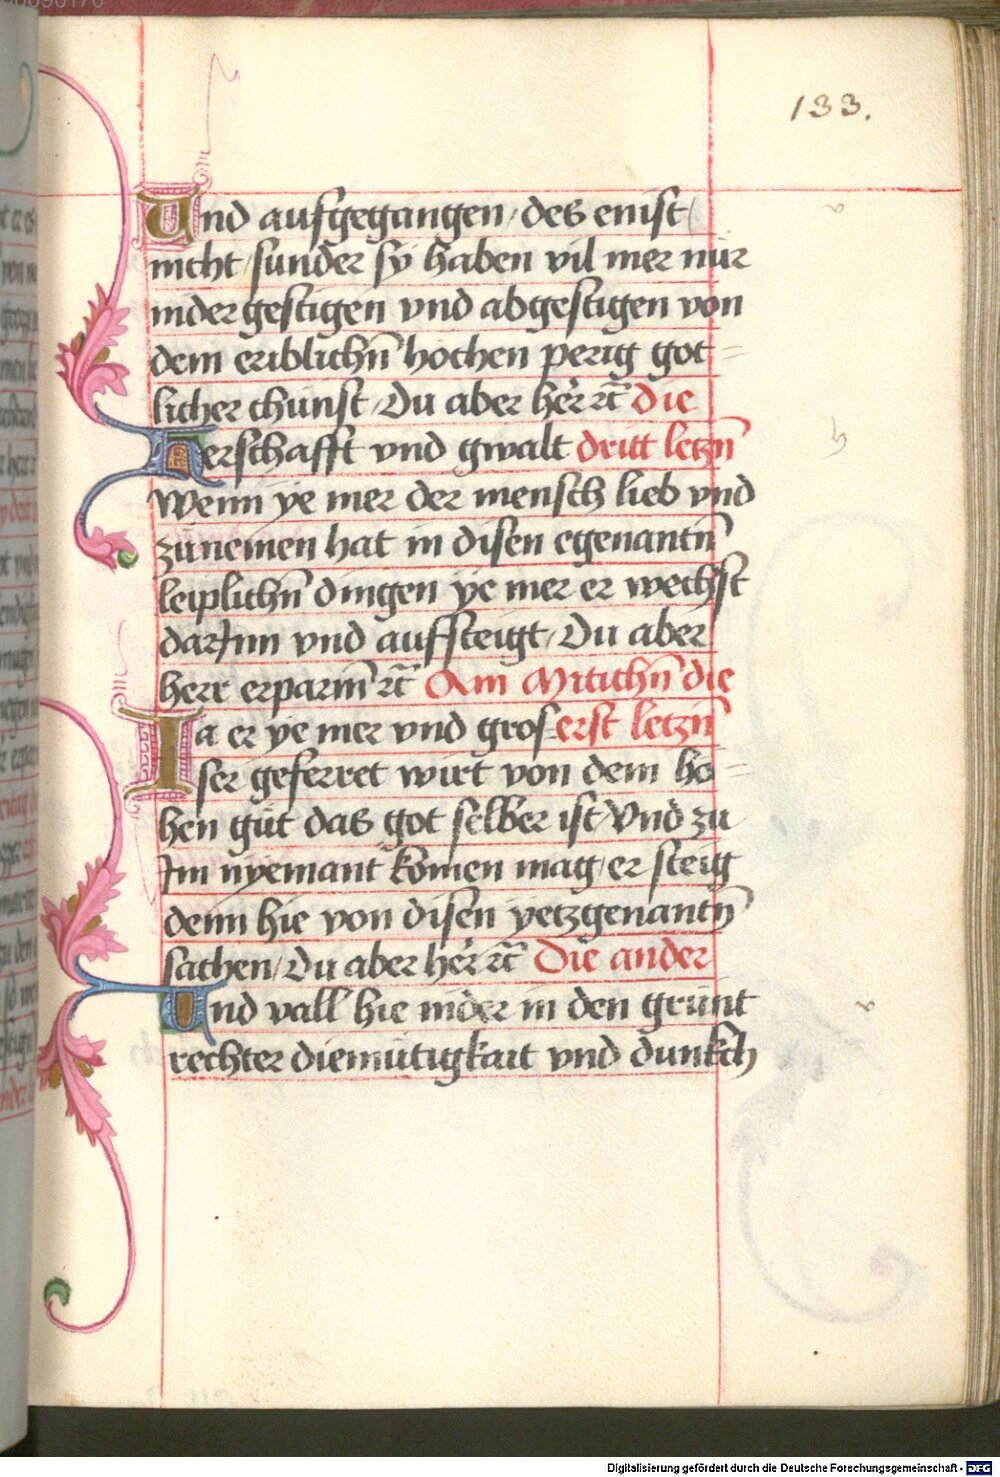 133.
Und aufgegangen / des enist
nicht / sunder sy haben vil mer nür
nider gestigen vnd abgestigen von
dem eriblichn̄ hochen perig got=
licher chunst / Du aber her̄ rc̄ die
Herschafft vnd gwalt dritt letzn̄
Wenn ye mer der mensch lieb vnd
zunemen hat in disen egenantn̄
leiplichn̄ dingen ye mer er wechst
darJnn vnd auffsteigt / Du aber
herr erparm̄ rc̄ Am Mitichn̄ die
Ja er ye mer vnd gros= erst letzn̄
ser geferret wirt von dem ho=
hen güt das got selber ist Vnd zu
Jm nyemant komen mag / er steig
denn hie von disen yetzgenantn̄
sachen / Du aber her̄ rc̄ Die ander
Und vall hie nider in den grunt
rechter diemutigkait vnd dunkch
Digitalisierung gefördert durch die Deutsche Forschungsgemeinschaft - DFG